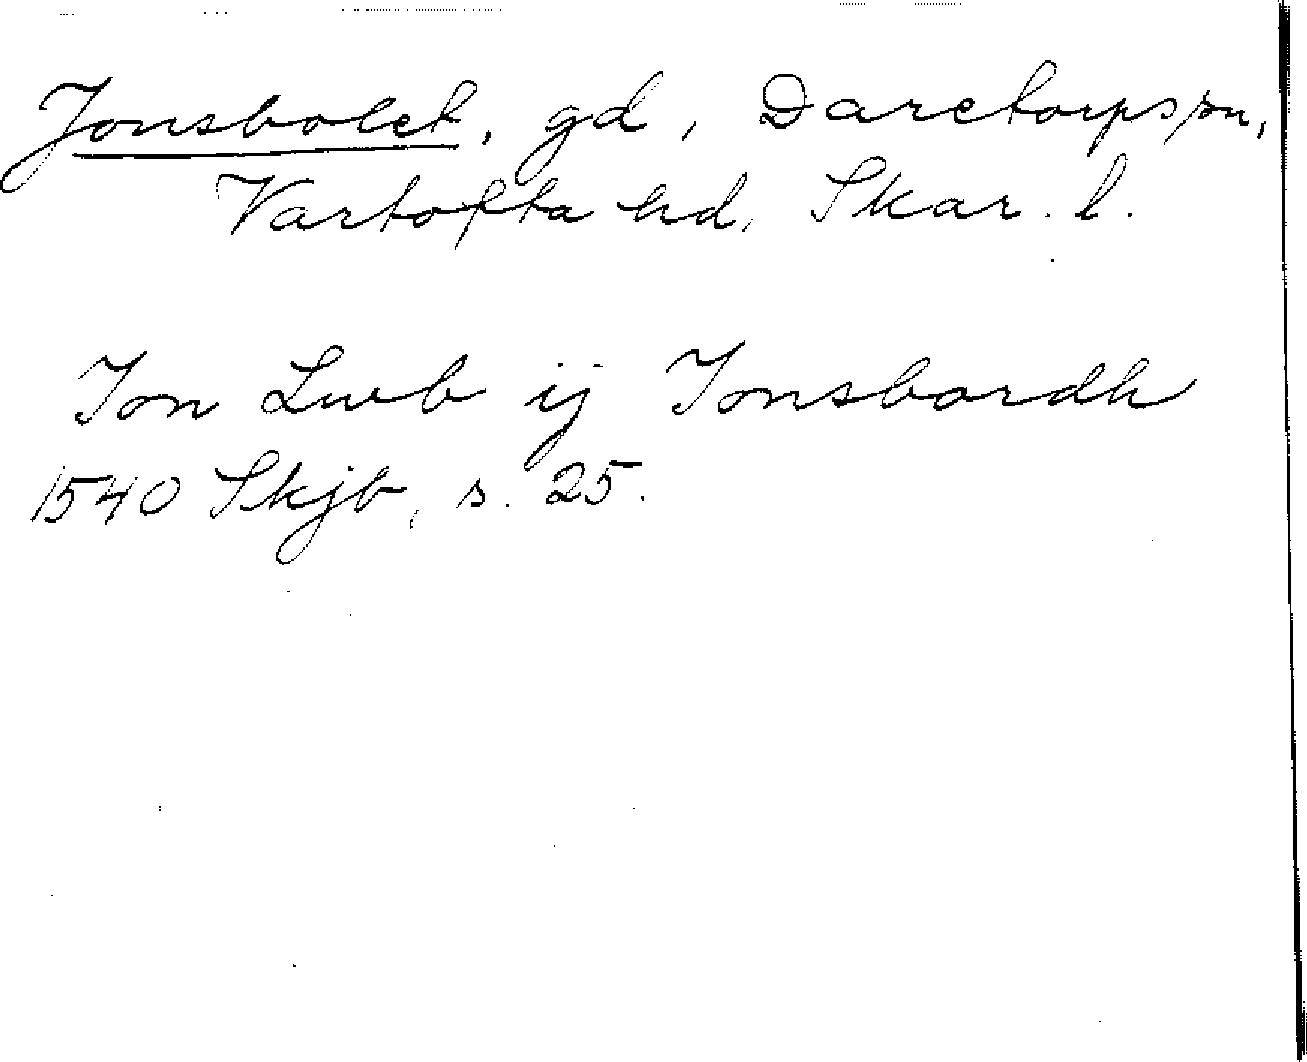 Jonsbolet, gd, Daretorps sn,
Vartofta hd, Skar. l.
Ion Lwb ij Ionsbordh
1540 Skjb, s. 25.